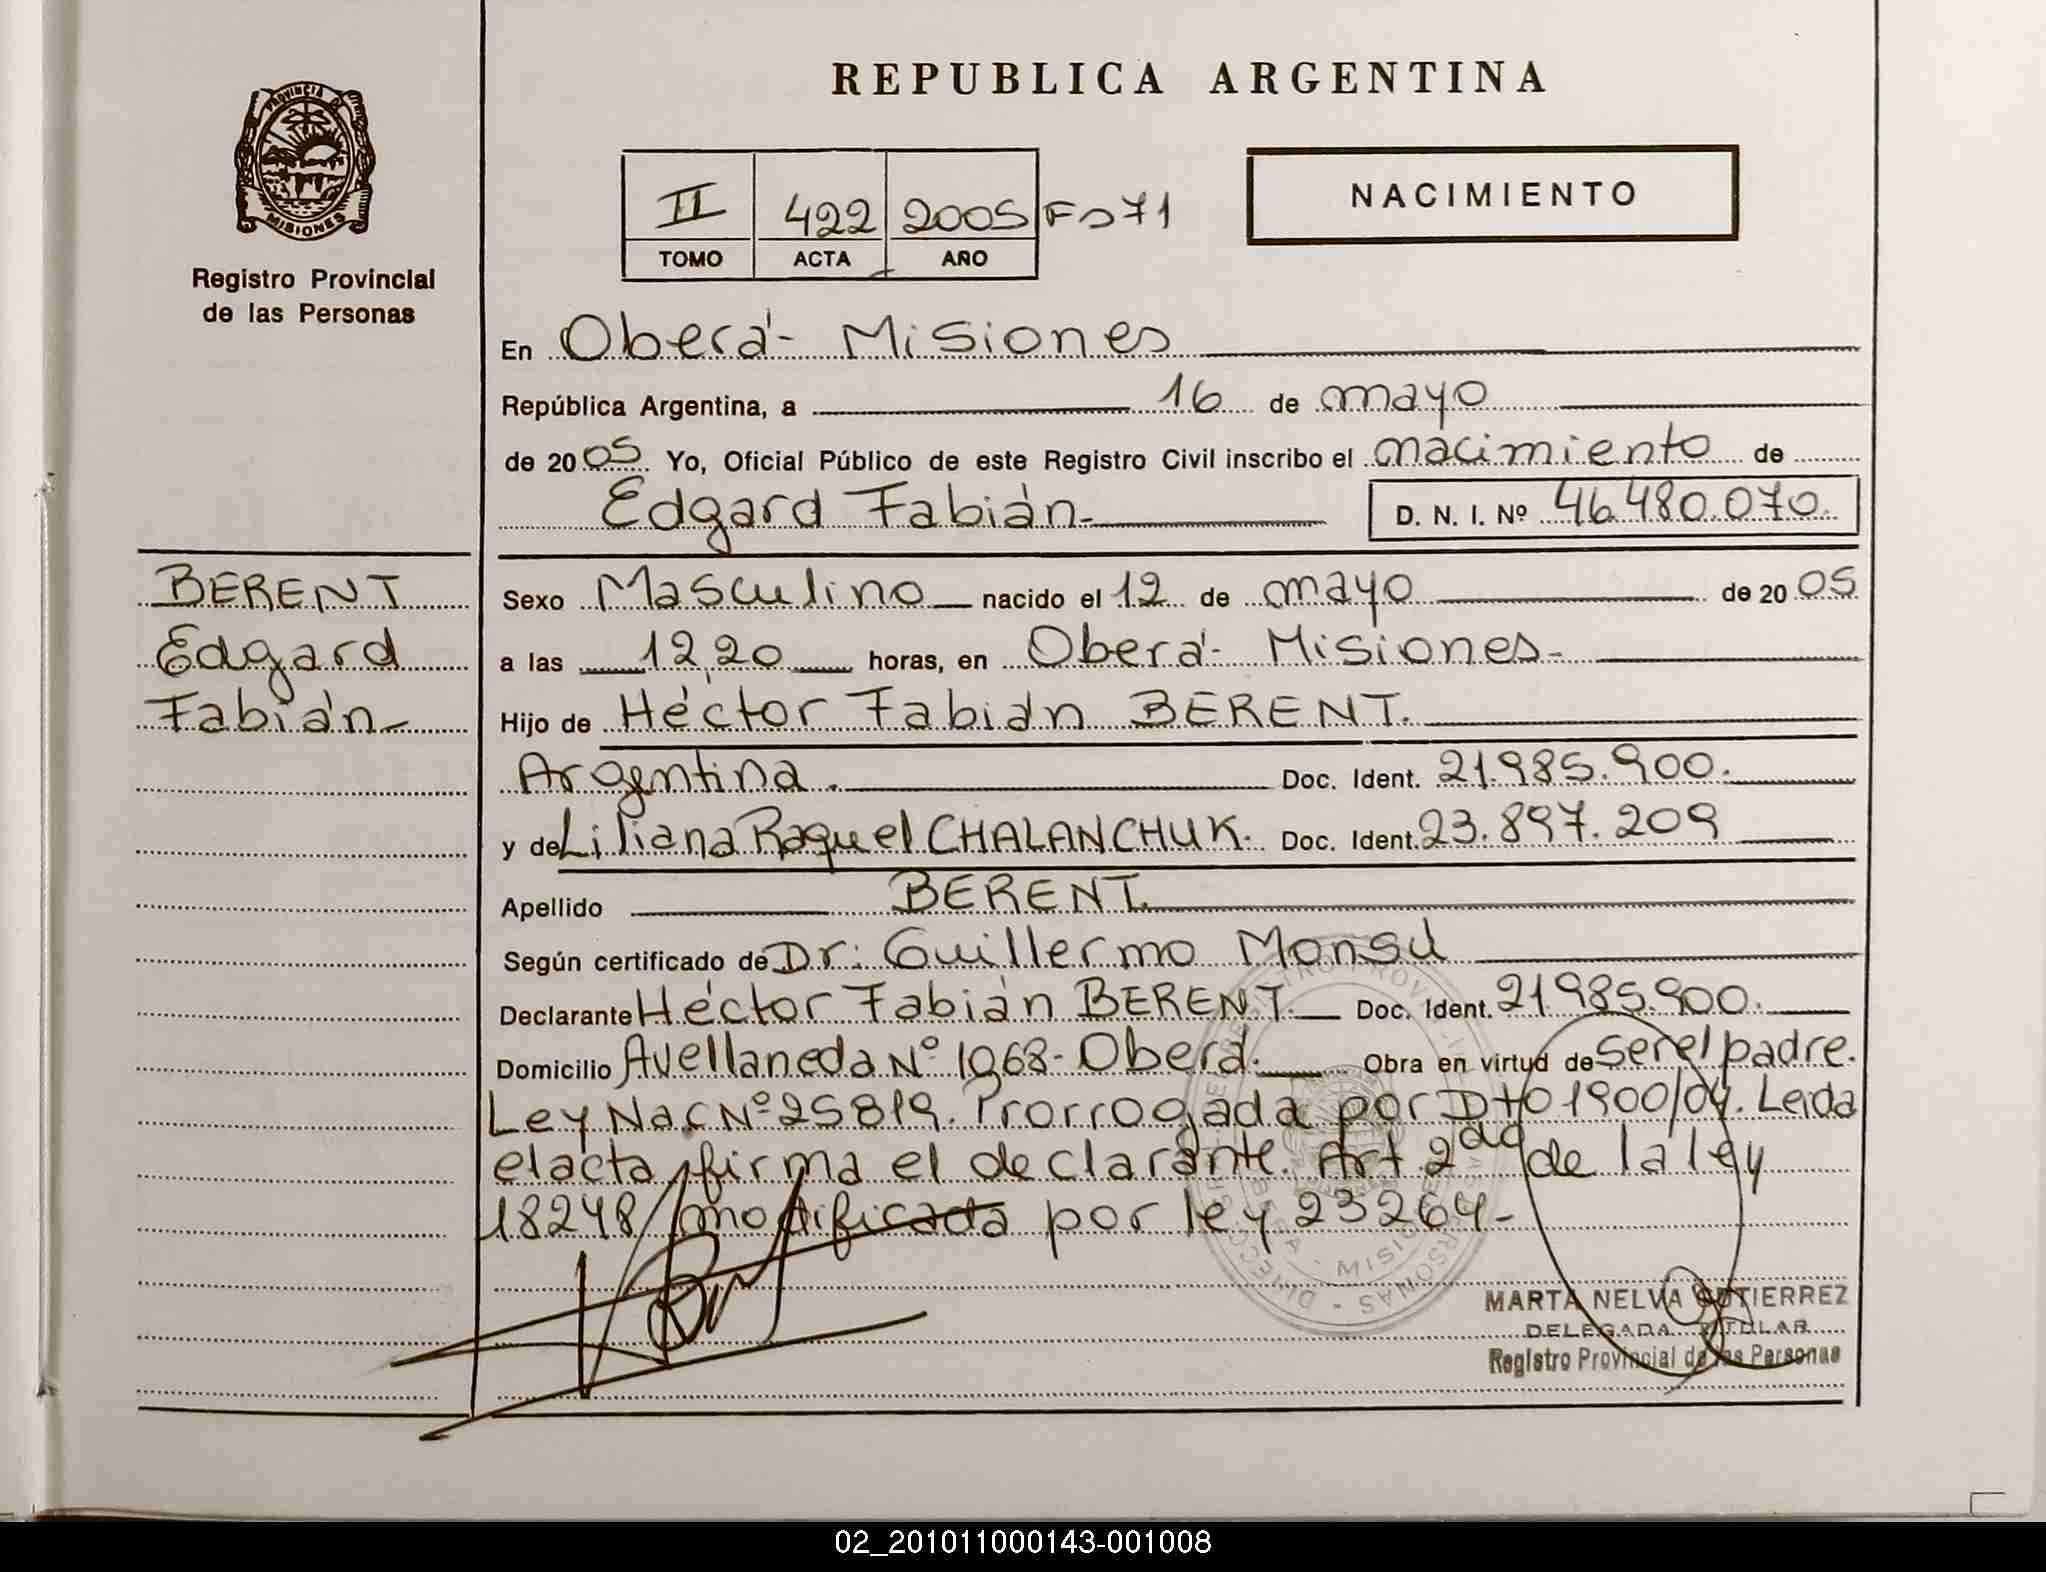 REPUBLICA ARGENTINA
PROVINCIA DE
MISIONES
Registro Provincial
de las Personas
II 422 2005 Fº 71
TOMO ACTA AÑO
NACIMIENTO
En Oberá - Misiones
República Argentina, a 16 de mayo
de 2005 Yo, Oficial Público de este Registro Civil inscribo el nacimiento de
Edgard Fabián- D. N. I. Nº 46.480.070.
BERENT
Edgard
Fabián-
Sexo Masculino nacido el 12 de mayo de 2005
a las 12,20 horas, en Oberá- Misiones-
Hijo de Héctor Fabián BERENT.
Argentina. Doc. Ident. 21.985.900.
y de Liliana Raquel CHALANCHUK. Doc. Ident. 23.897.209
Apellido BERENT.
Según certificado de Dr: Guillermo Monsú
Declarante Héctor Fabián BERENT. Doc. Ident. 21.985.900.
Domicilio Avellaneda Nº 1068- Oberá. Obra en virtud de ser el padre.
Ley Nac Nº 25819. Prorrogada por Dto 1900/04. Leida
el acta, firma el declarante. Art 2do de la ley
18248 modificada por ley 23264-
MARTA NELVA GUTIERREZ
DELEGADA TITULAR
Registro Provincial de las Personas
02_201011000143-001008